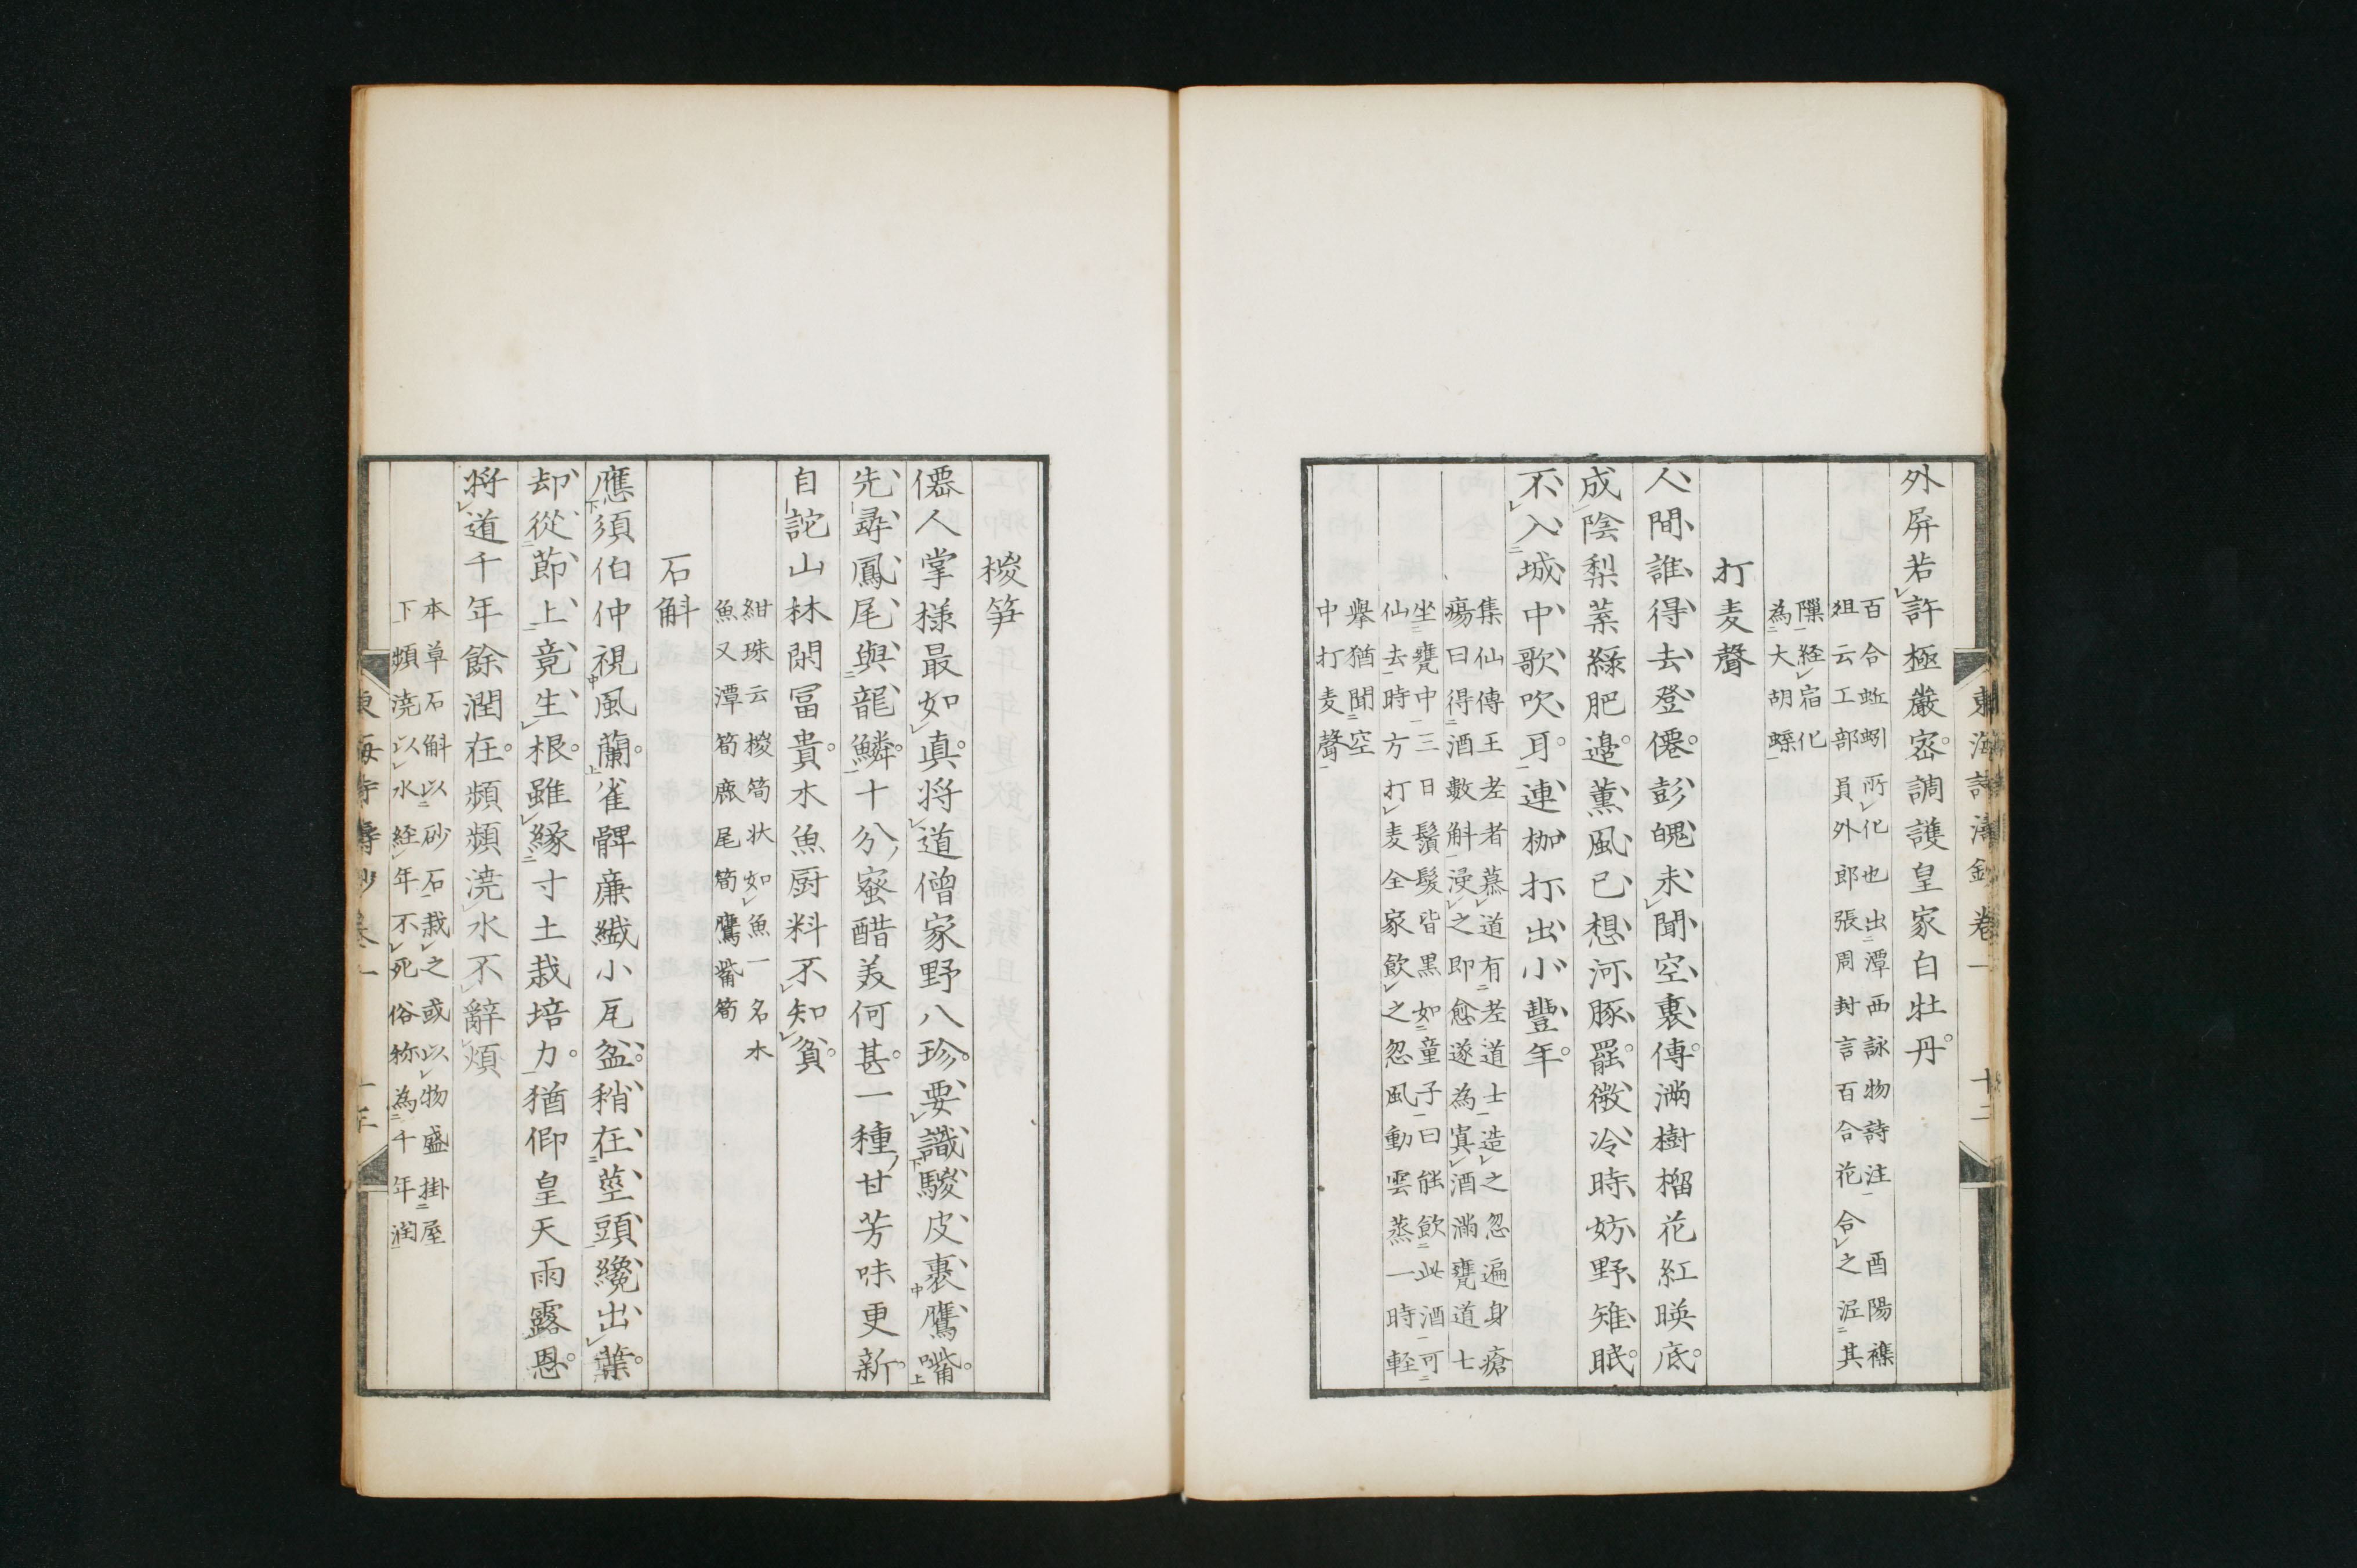 外屏若許極嚴密調護皇家白牡丹
百合蚯蚓所化也出潭西詠物詩注酉陽襍
俎云工部員外郎張周封言百合花合之泥其
隟経宿化
為大胡蝶
打麦聲
人間誰得去登僊彭䰟未聞空裏傳滿樹榴花紅暎底
成陰梨葉綠肥邉薫風已想河豚罷微冷時妨野雉眠
不入城中歌吹耳連枷打出小豐年
集仙傳王老者慕道有老道士造之忽遍身瘡
瘍曰得酒數斛浸之即愈遂為寘酒滿甕道士
坐甕中三日鬚髮皆黒如童子曰能飲此酒可
仙去時方打麦全家飲之忽風動雲蒸一時軽
擧猶聞空
中打麦聲
椶笋
僊人掌様最如真将道僧家野八珍要識駿皮裹鷹嘴
先尋鳳尾與龍鱗十分蜜醋美何甚一種甘芳味更新
自詑山林閑冨貴木魚厨料不知貧
紺珠云椶筍状如魚一名木
魚又潭筍鹿尾筍鷹觜筍
石斛
應須伯仲視風蘭雀髀亷纎小瓦盆稍在莖頭纔出葉
却從節上竟生根雖縁寸土栽培力猶仰皇天雨露恩
将道千年餘潤在頻頻澆水不辭煩
本草石斛以砂石栽之或以物盛掛屋
下頻澆以水経年不死俗称為千年潤
東海詩濤鈔卷一 十二